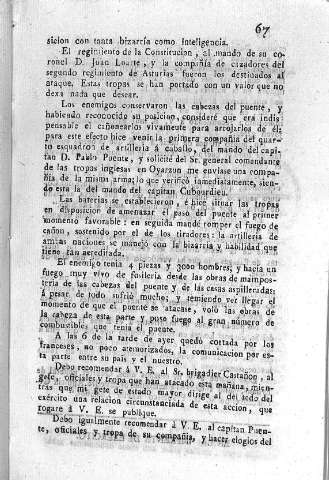 67
sicion con tanta bizarría como inteligencia.
El regimiento de la Constitucion, al mando de su co-
ronel D. Juan Loarte, y la compañía de cazadores del
segundo regimiento de Asturias fueron los destinados al
ataque. Estas tropas se han portado con un valor que no
dexa nada que desear.
Los enemigos conservaron las cabezas del puente, y
habiendo reconocido su posicion, consideré que era indis-
pensable el cañonearlos vivamente para arrojarlos de él:
para este efecto hice venir la primera compañía del quar-
to esquadron de artillería á caballo, del mando del capi-
tan D. Pablo Puente, y solicité del Sr. general comandante
de las tropas inglesas en Oyarzun me enviase una compa-
ñía de la misma arma; lo que verificó inmediatamente, sien-
do esta la del mando del capitan Cubourdieu.
Las baterías se establecieron, é hice situar las tropas
en disposicion de amenazar el paso del puente al primer
momento favorable: en seguida mandé romper el fuego de
cañon, sostenido por el de los tiradores: la artillería de
ambas naciones se manejó con la bizarría y habilidad que
tiene tan acreditada.
El enemigo tenia 4 piezas y 3000 hombres; y hacia un
fuego muy vivo de fusilería desde las obras de mampos-
tería de las cabezas del puente y de las casas aspilleradas:
á pesar de todo sufrió mucho; y temiendo ver llegar el
momento de que el puente se atacase, voló las obras de
la cabeza de esta parte y puso fuego al gran número de
combustibles que tenia el puente.
A las 6 de la tarde de ayer quedó cortada por los
franceses, no poco atemorizados, la comunicacion por es-
ta parte entre su pais y el nuestro.
Debo recomendar á V. E. al Sr. brigadier Castañon, al
gefe, oficiales y tropa que han atacado esta mañana, mien-
tras que mi gefe de estado mayor dirige al del de
exército una relacion circunstanciada de esta accion, que
rogaré á V. E. se publique.
Debo igualmente recomendar á V. E. al capitan Puen-
te, oficiales y tropa de su compañía, y hacer elogios del